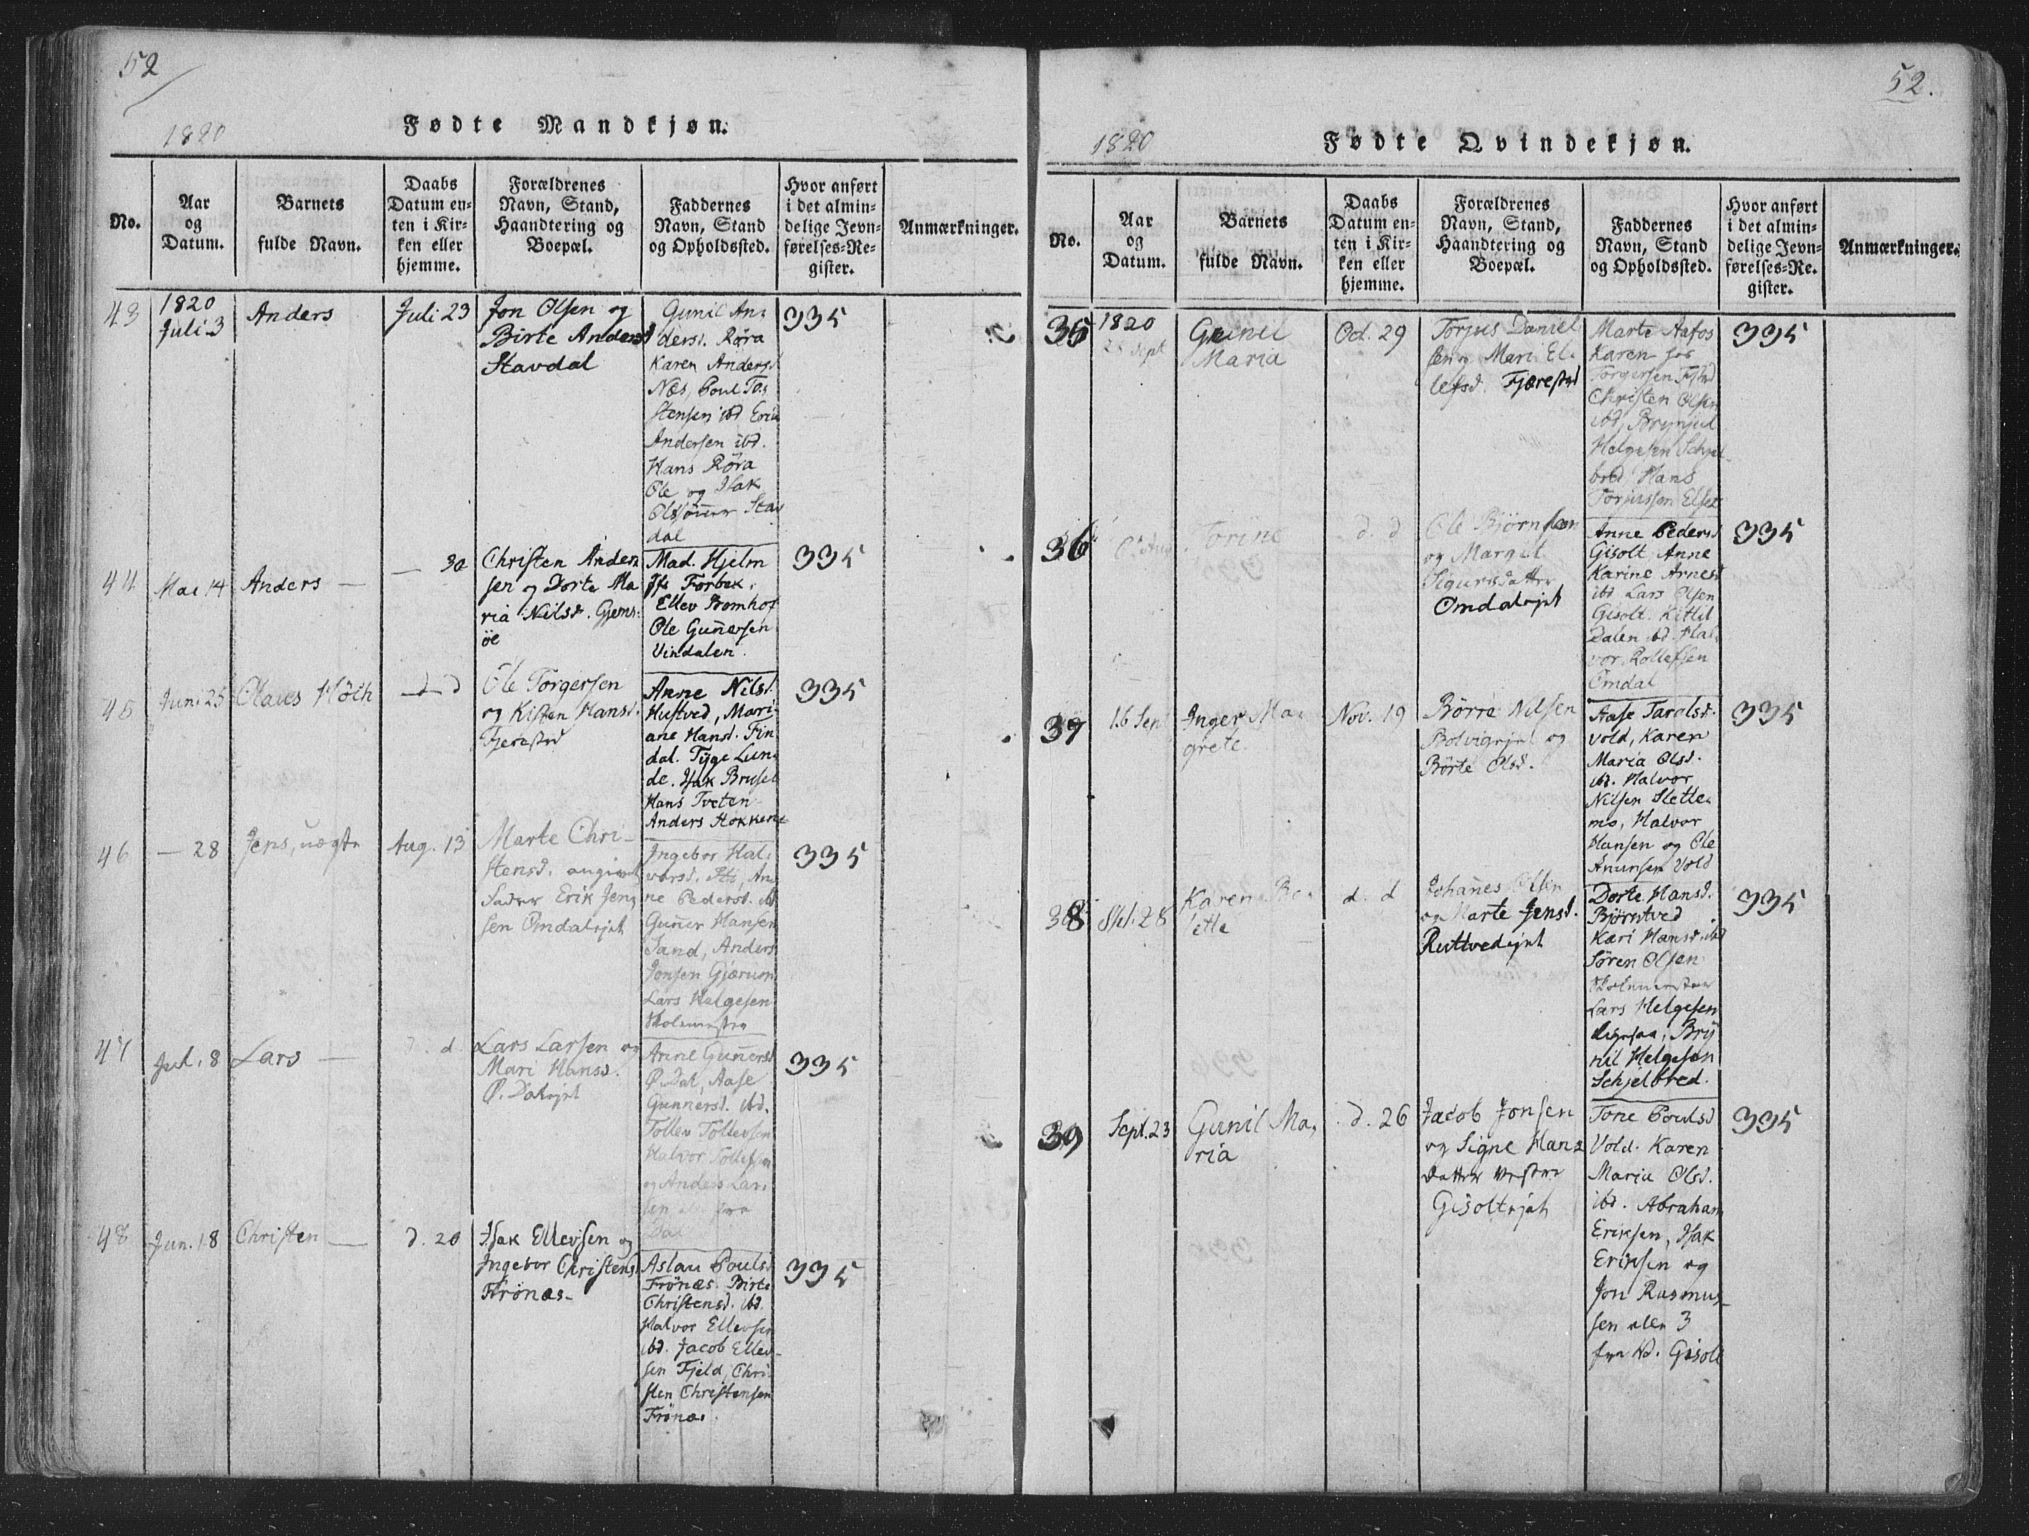 52
1820
Fødte Mandkjøn.
No.
Aar og Datum.
Barnets fulde Navn.
Daabs Datum enten i Kirken eller hjemme.
Forældrenes Navn, Stand, Haandtering og Boepæl.
Faddernes Navn, Stand og Opholdssted.
Hvor anført i det almindelige Jevnførelses-Register.
Anmærkninger.
43
1820
Juli 3
Anders
Juli 23
Jon Olsen og
Birte Andersd
Stavdal
Gunil An-
dersd. Røra
Karen Andersd
Næs, Poul Ta-
stensen ibd Erik
Andersen ibd.
Hans Røra
Ole og Isak
Olssønner Stav
dal
335
44
Mai 14
Anders
30
Christen Ander
sen og Dorte Ma
ria Nilsd. Gjems-
øe
Mad. Hjelm
Jfr Forbek,
Ellev Bromhof
Ole Guñersen
Vindalen.
335
45
Juni 25
Olaves Höth
d d
Ole Torgersen
og Kisten Hansd.
Fjerestad
Anne Nilsd.
Hustved, Mari-
ane Hansd. Fin
dal. Tyge Lun-
de. Isak Brusel
Hans Tveten
Anders Stokken
335
46
28
Jens, uægte
Aug. 13
Marte Chri-
stensd. angivet
Fader Erik Jen
sen Omdalsjet
Ingebor Hal-
vorsd. Sti, An
ne Pedersd. ibd
Guñer Hansen
Sand, Anders
Jonsen Gjærum
Lars Helgesen
Skolemester
335
47
Jul. 8
Lars
d. d
Lars Larsen og
Mari Hansd.
Ø. Dalsjet
Anne Guñersd.
Ø. Dal, Aase
Gunnersd. ibd.
Tollev Tollevsen
Halvor Tollefsen
og Anders Lar-
sen
Dal
335
48
Jun. 18
Christen
d. 20
Isak Ellevsen og
Ingebor Christensd
Frönæs
Aslau Poulsd
Frönæs. Birte
Christensd. ibd.
Halvor Ellevsen
ibd. Jacob Ellev-
sen Fjeld, Chri-
sten Christensen
Frönæs.
335
52.
1820
Fødte Qvindekjøn.
No.
Aar og Datum.
Barnets fulde Navn.
Daabs Datum enten i Kirken eller hjemme.
Forældrenes Navn, Stand, Haandtering og Boepæl.
Faddernes Navn, Stand og Opholdssted.
Hvor anført i det almindelige Jevnførelses-Re.gister.
Anmærkninger.
35
1820
Sept
Gunil
Maria
Oct. 29
Torjus Daniel
sen og Mari El-
lefsd. Fjærestad
Marte Aafos
Karen
Torgersen
Christen Olsen
ibd, Brynjul
Helgesen Schjel
bred Hans
Torjussen
335
36
Torine
d. d
Ole Björnsen
og Margit
Sigursdatter
Omdalsjet
Anne Pedersd
Gisolt Anne
Karine Arnesd
ibd Lars Olsen
Gisolt. Kittil
Dalen ibd. Hal-
vor Rollefsen
Omdal
335
37
16 Sep
Inger Ma-
grete
Nov. 19
Börre Nilsen
Bolvigejet og
Börte Olsd.
Aase Taralsd.
Vold, Karen
Maria Olsd.
ibd. Halvor
Nilsen Slette-
mo, Halvor
Hansen og Ole
Anunsen Vold
335
38
Sept. 28
Karen Bo-
lette
d. d
Johañes Olsen
og Marte Jensd.
Ruttvedejet
Dorte Hansd.
Björntved
Kari Hansd. ibd
Sören Olsen
Skolemester
Lars Helgesen
Bry
nil Helgesen
Schjelbred.
335
39
Sept. 23
Gunil Ma-
ria
d. 26
Jacob Jonsen
og Signe Hans
datter vestre
Gisoltejet
Tone Poulsd
Vold. Karen
Maria Olsd.
ibd. Abraham
Eriksen, Isak
Eriksen og
Jon Rasmus-
sen alle 3
Gisolt
335